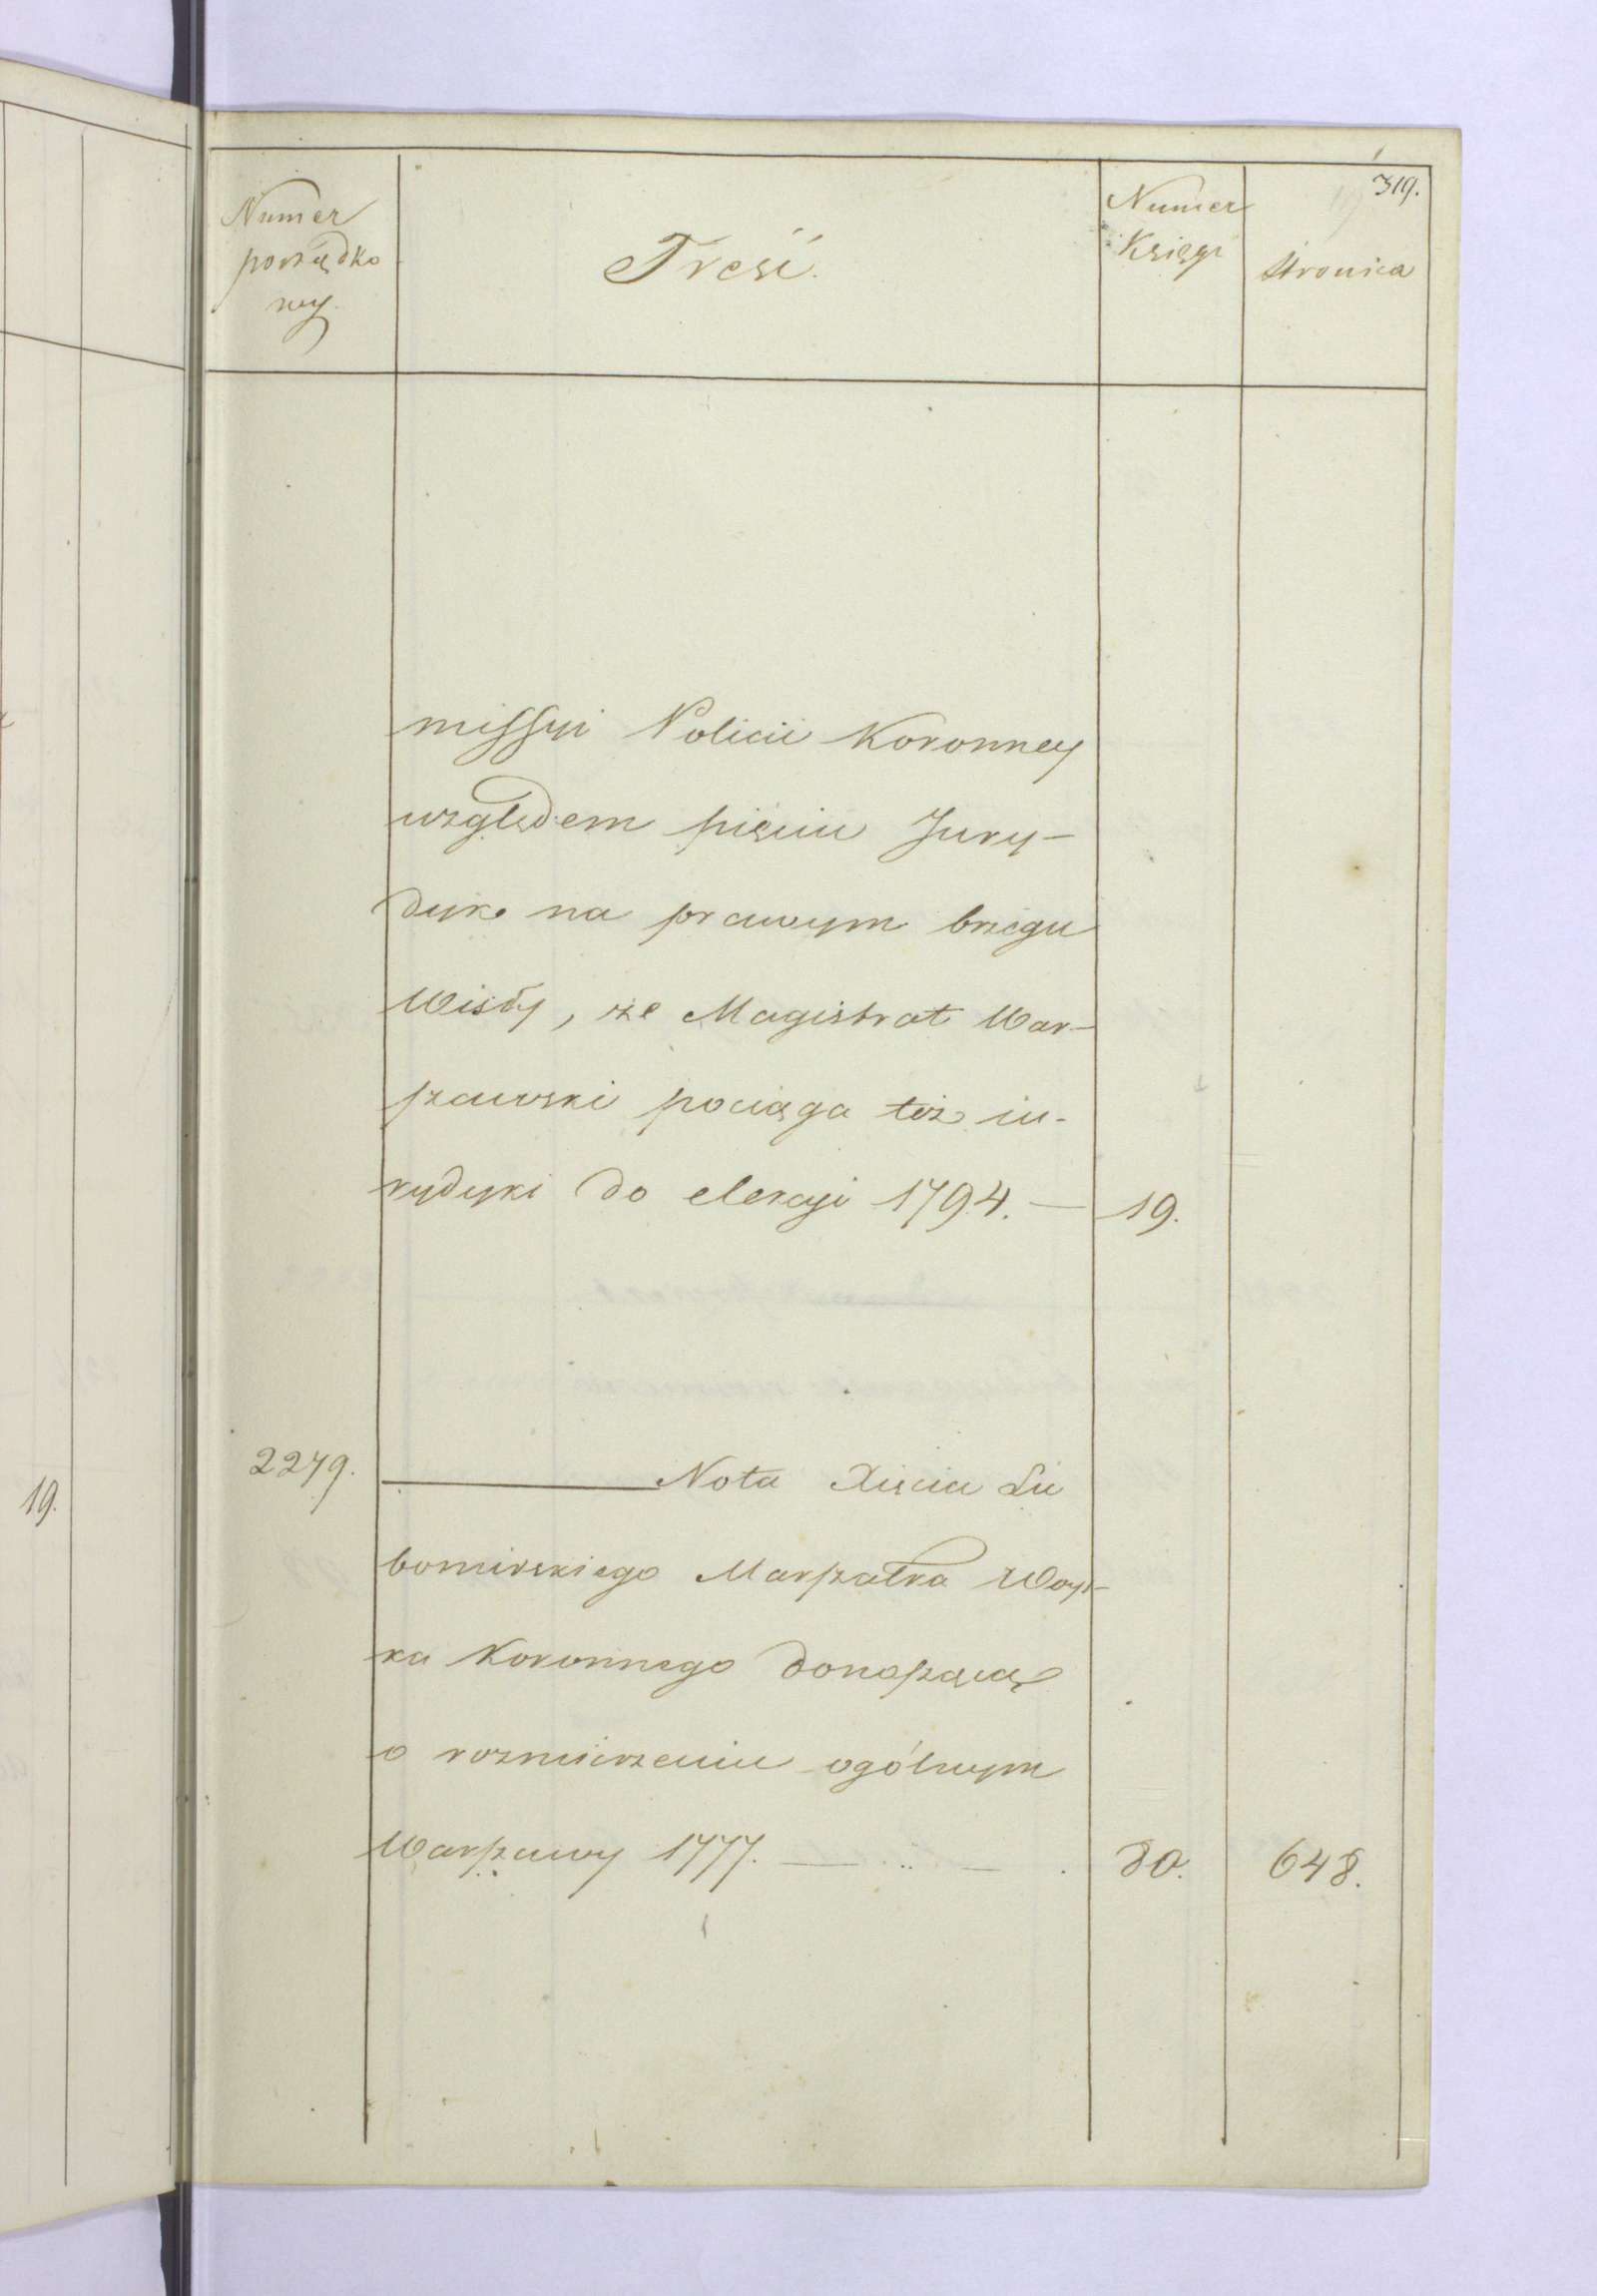 319.
Numer porządko wy.
Treść.
Numer Księgi
Stronica
missyi Policii Koronney
względem pięciu Jury-
dyk na prawym brzegu
Wisły, że Magistrat War-
szawski pociąga też iu-
rydyki do elekcyi 1794. — 19.
2279. Nota Xięcia Lu
bomirskiego Marszałka Woys-
ka Koronnego donosząca
o rozmierzeniu ogólnym
Warszawy 1777. — — 80. 648.
19.